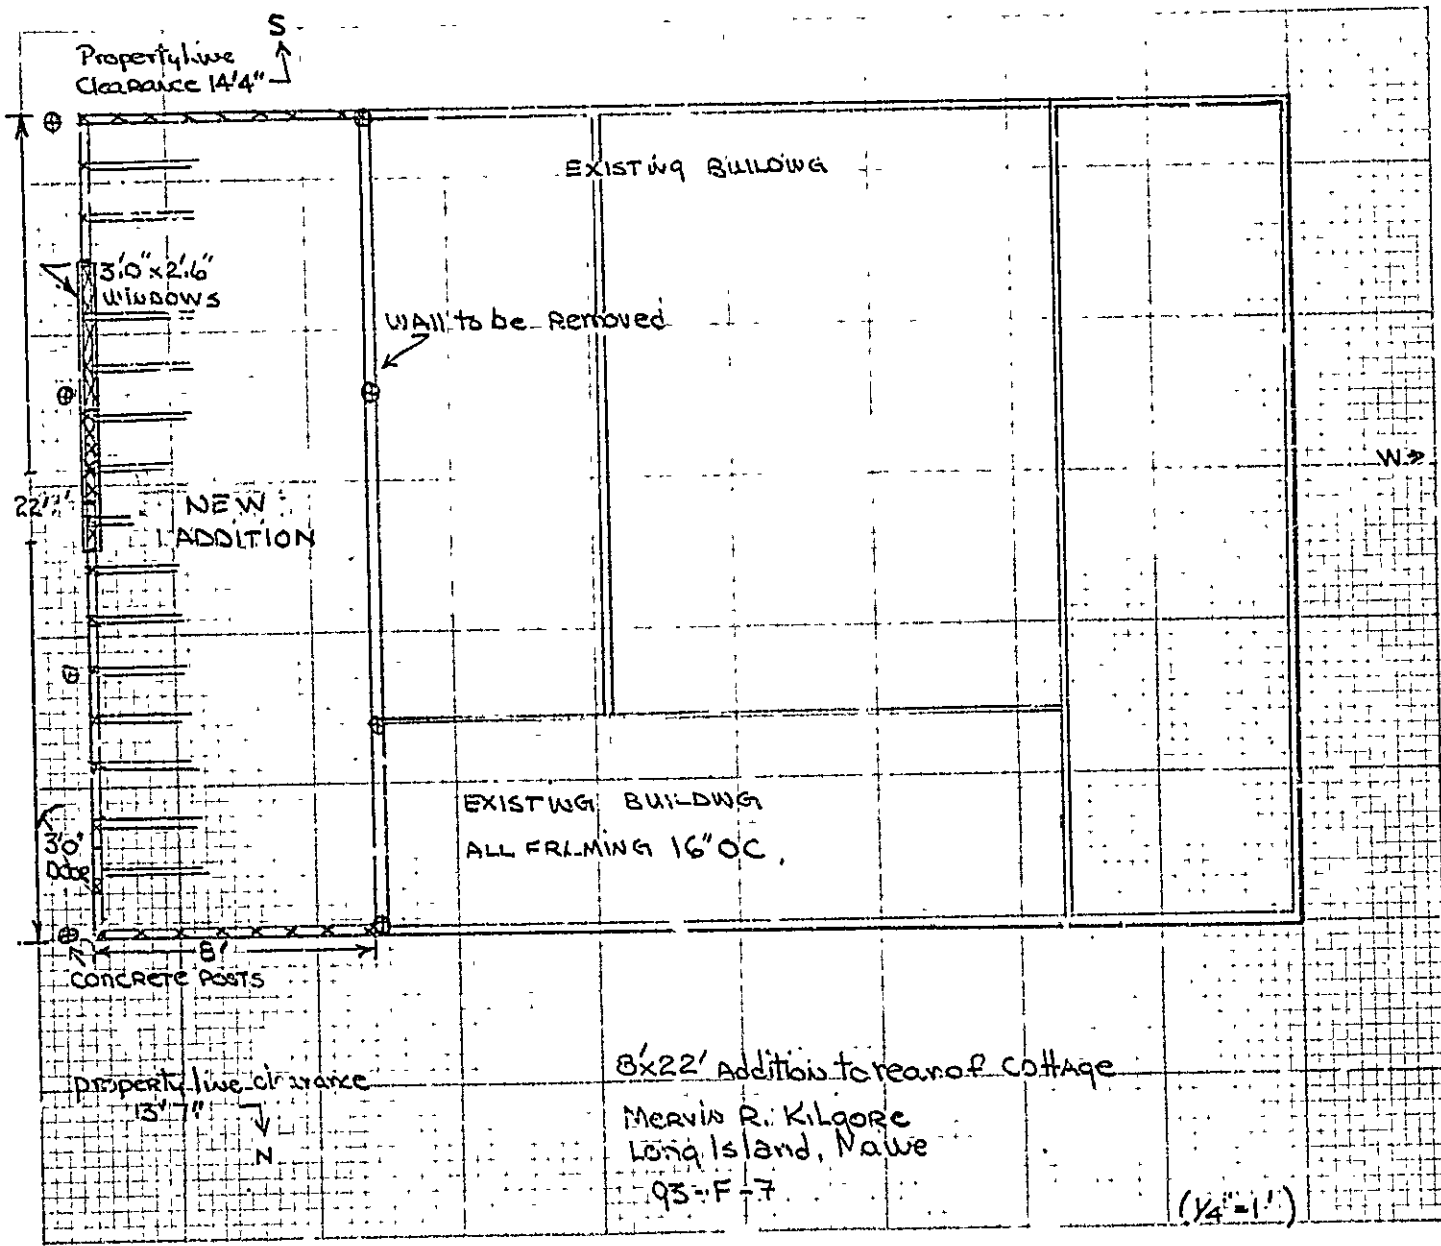 S
Property Line
Clearance 14'4"
EXISTING BUILDING
3'0" x 2'6"
WINDOWS
WAll to be Removed
W
22'
NEW
ADDITION
EXISTING BUILDING
ALL FRAMING 16" OC.
3'0"
Door
8'
CONCRETE POSTS
property line clearance
13' 7"
N
8'x22' Addition to rear of CottAge
Mervin R. KILgoRe
Long Island, Maine
93-F-7
(1/4"=1')